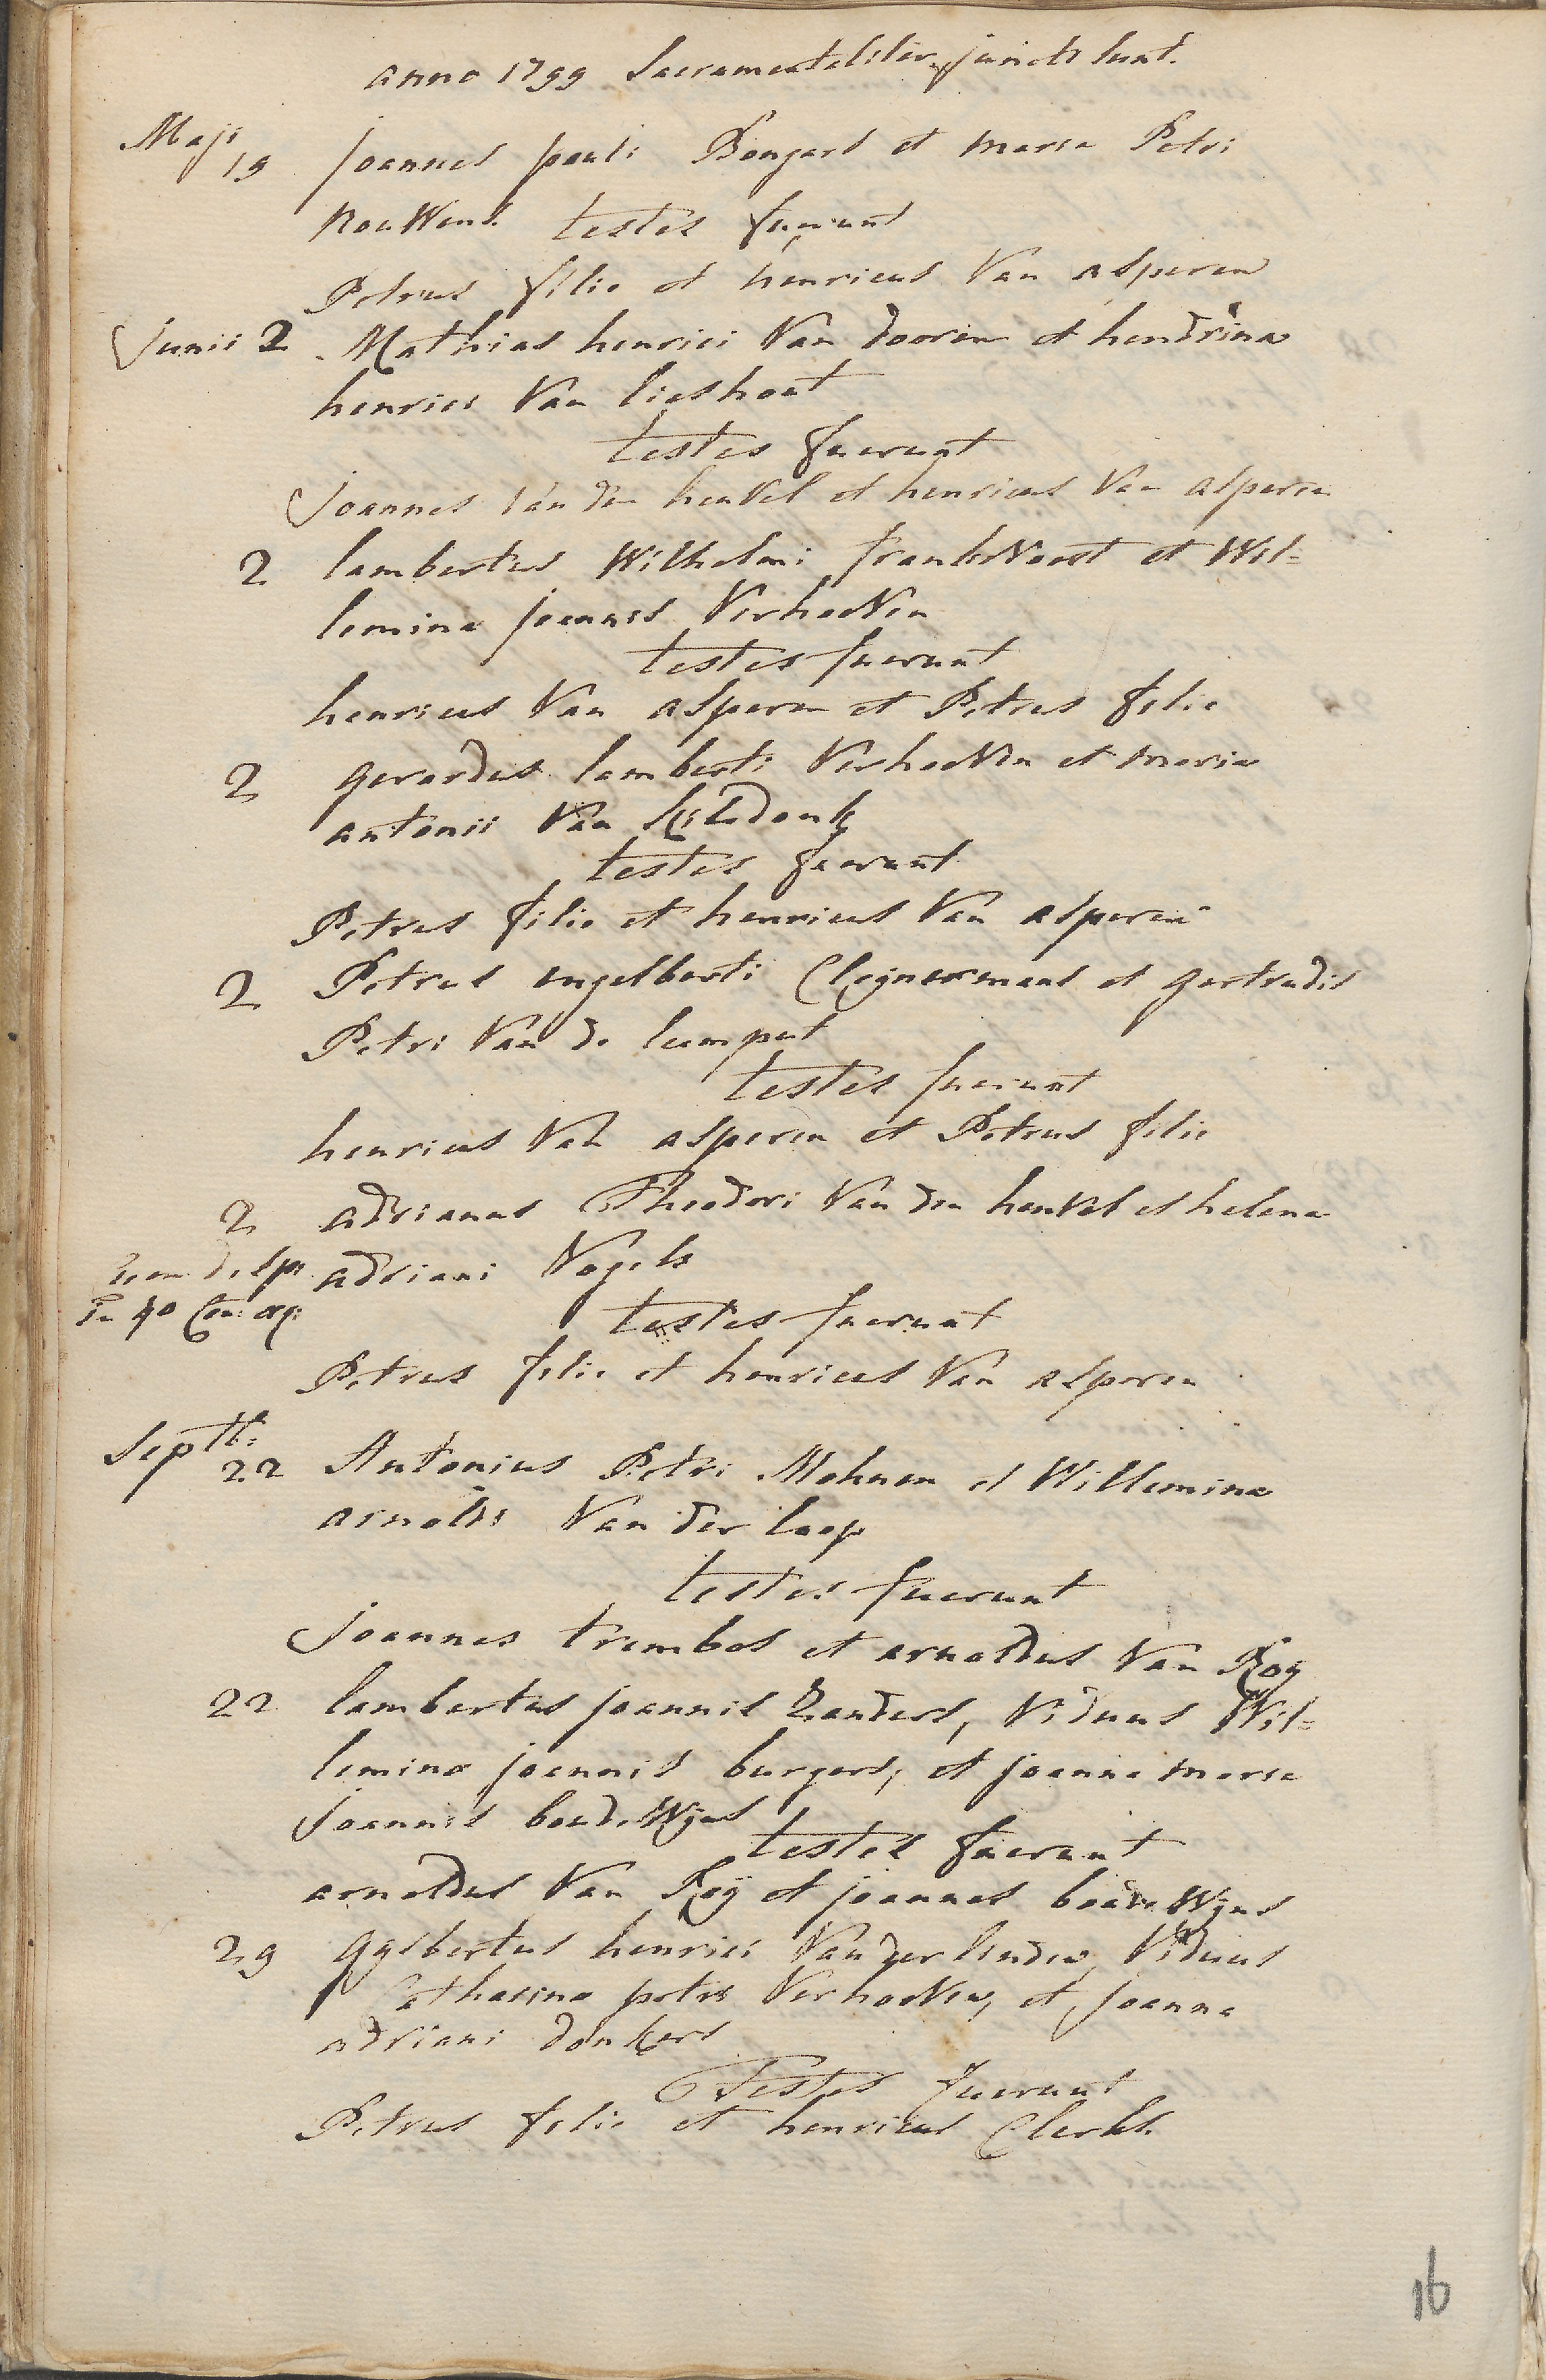 anno 1799 Sacramentaliter juncti sunt.
Maji
19 Joannes pauli Bongars et maria Petri
Rouwens. testes fuerunt
Petrus filie et henricus Van asperen
Junii 2 Mathias henrici Van dooren et hendrina
henrici Van lieshout
testes fuerunt
Joannes Van den heuvel et henricus Van asperen
2 lambertus Wilhelmi frankevoort et Wil=
lemina joannis Verhoeven
testes fuerunt
henricus Van asperen et Petrus filie
2 gerardus lamberti Verhoeven et maria
antonii Van kilsdonk
testes fuerunt
Petrus filie et henricus Van asperen
2 Petrus engelberti Clijnermans et gertrudis
Petri Van de lumput
testes fuerunt
henricus Van asperen et Petrus filie
2 adrianus Theodori Van den heuvel et helena
cum disp. adriani Vogels
in 4o con: aq:
testes fuerunt
Petrus filie et henricus Van asperen
Septb:
22 Antonius Petri Mohnen et Willemina
arnoldi Van der loop
testes fuerunt
Joannes trembos et arnoldus Van Roy
22 lambertus joannis Zanders, Viduus Wil=
lemina joannis burgers, et joanna maria
Joannis boudewijns
testes fuerunt
arnoldus Van Roÿ et joannes boudewijns
29 gysbertus henrici Van der linden, Viduus
Catharina petri Verhoeven, et joanna
adriani donkers
Testes fuerunt
Petrus filie et henricus Clerks.
16